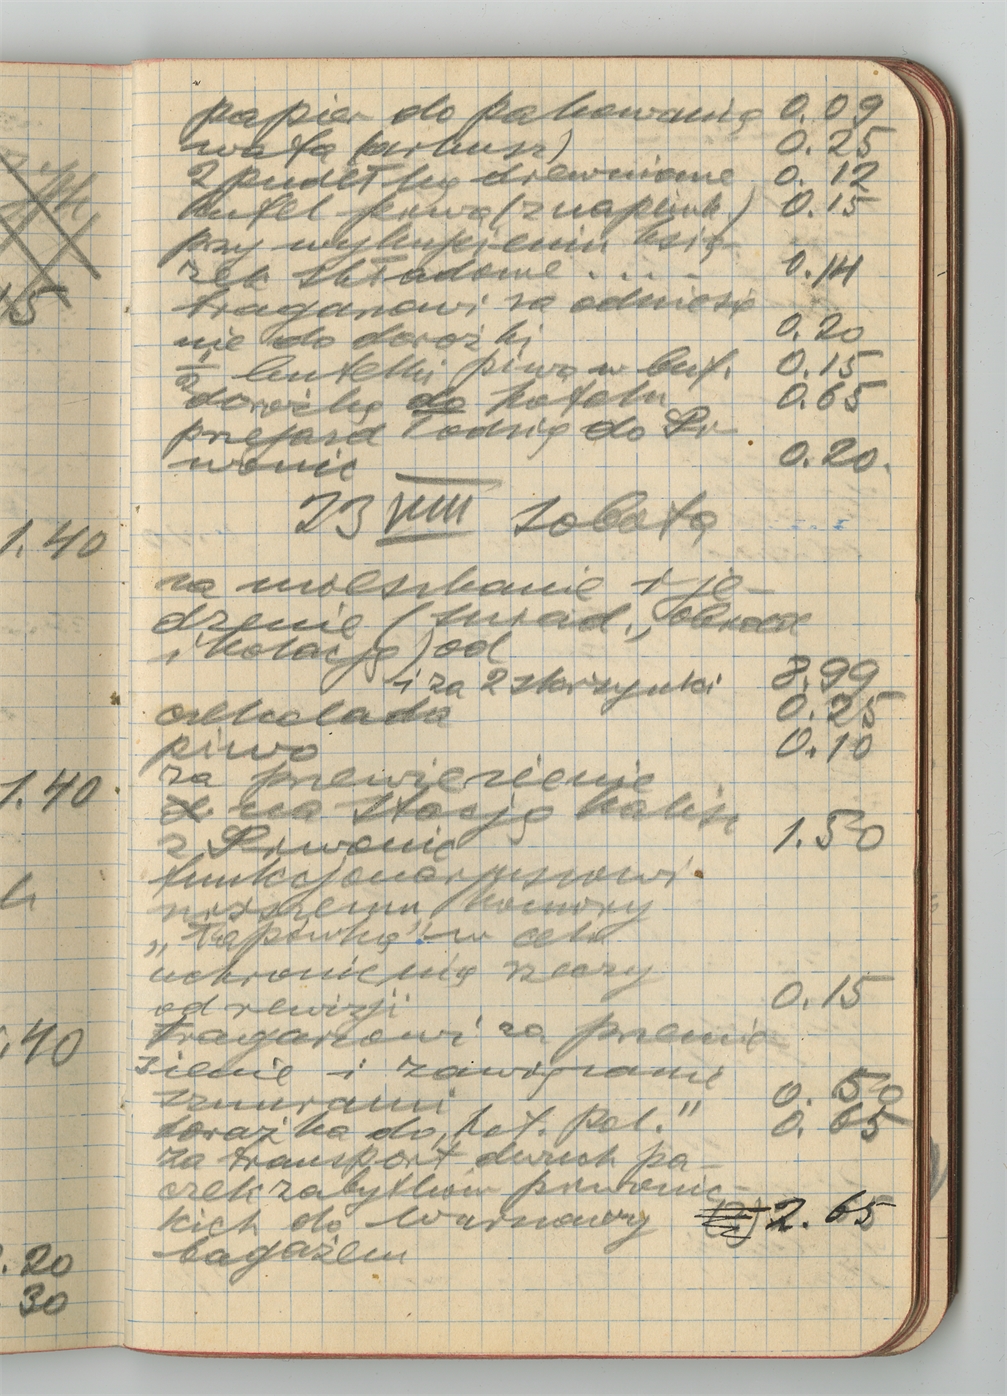 papier do pakowania 0.09
wata (arkusz) 0.25
2 pudełka drewniane 0.12
kufel piwa (z napiwk) 0.15
przy wykupieniu ksią-
żek składowe . . . - 0.14
tragarzowi za odniesie
nie do dorożki 0.20
1/2 butelki piwa w but. 0.15
dorożka do hotelu 0.65
przejazd łodzią do Pi-
wonic 0.20.
23 VIII sobota
za mieszkanie i je-
dzenie (śniad., obiad
i kolacja) od
i za 2 skrzynki 8.99
czekolada 0.25
piwo 0.10
za przewiezienie
na stację Kalisz
z Piwonic 1.50
funkcjonariuszowi
niższemu komory
„łapówka" w celu
uchronienia rzeczy
od rewizji 0.15
Tragarzowi za przenie
sienie i zawiązanie
sznurami 0.50
dorożka do „hot. Pol." 0.65
za transport dwuch pa-
czek zabytków piwonic-
kich do Warszawy 2.65
bagażem
15
1.40
1.40
.40
.20
30